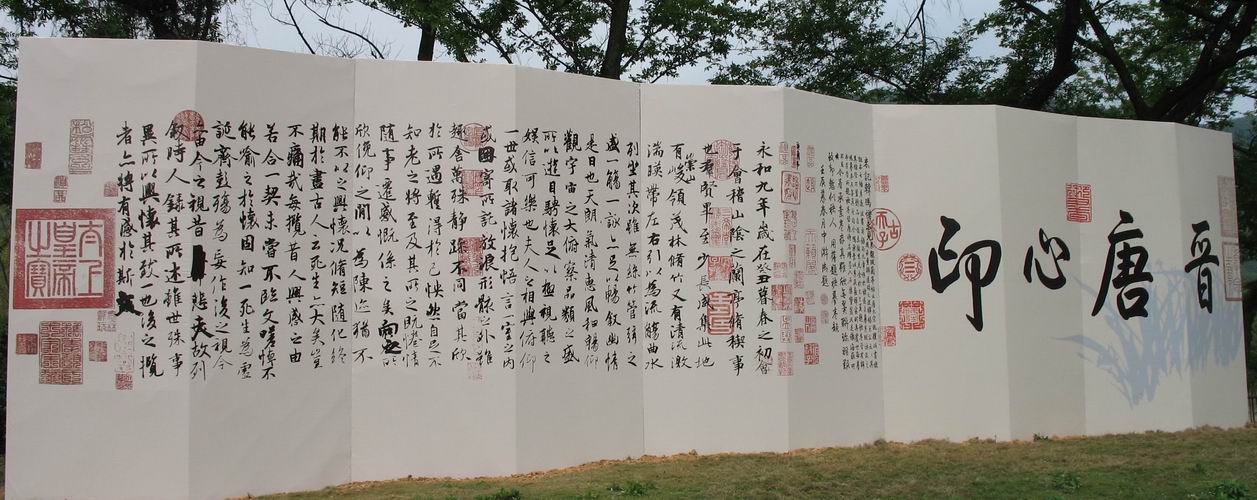 晋唐心印
永和九年歲在癸丑暮春之初會
于會稽山陰之蘭亭脩稧事
也羣賢畢至少長咸集此地
有崇山峻領茂林脩竹又有清流激
湍暎帶左右引以為流觴曲水
列坐其次雖無絲竹管弦之
盛一觴一詠上足以暢敘幽情
是日也天朗氣清惠風和暢仰
觀宇宙之大俯察品類之盛
所以遊目騁懷足以極視聽之
娛信可樂也夫人之相與俯仰
一世或取諸懷抱悟言一室之內
或因寄所託放浪形骸之外雖
趣舍萬殊靜躁不同當其欣
於所遇蹔得於己怏然自足不
知老之將至及其所之既惓情
隨事遷感慨係之矣向之所
欣俛仰之閒以為陳迹猶不
能不以之興懷況脩短隨化終
期於盡古人云死生亦大矣豈
不痛哉每攬昔人興感之由
若合一契未嘗不臨文嗟悼不
能喻之於懷固知一死生為虛
誕齊彭殤為妄作後之視今
亦由今之視昔悲夫故列
敘時人錄其所述雖世殊事
異所以興懷其致一也後之攬
者亦將有感於斯文
太上皇帝之寶